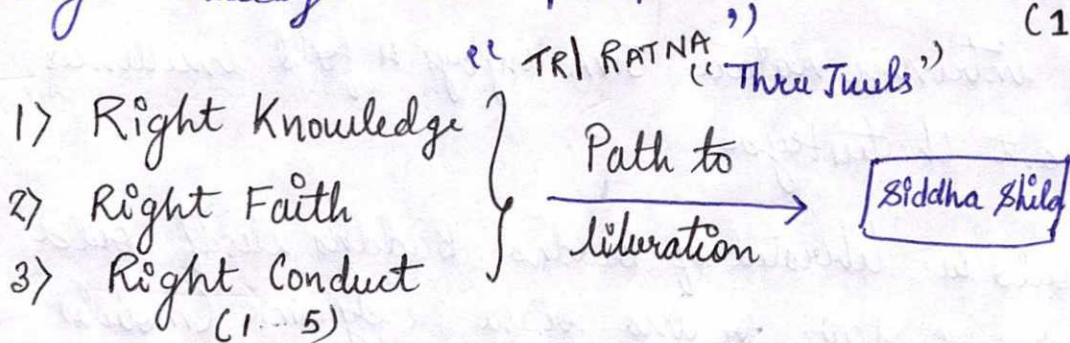 (1
“ TRI RATNA ”
(“Three Jewels”)
1) Right Knowledge
2) Right Faith
3) Right Conduct
(1...5)
Path to
liberation
Siddha Shila